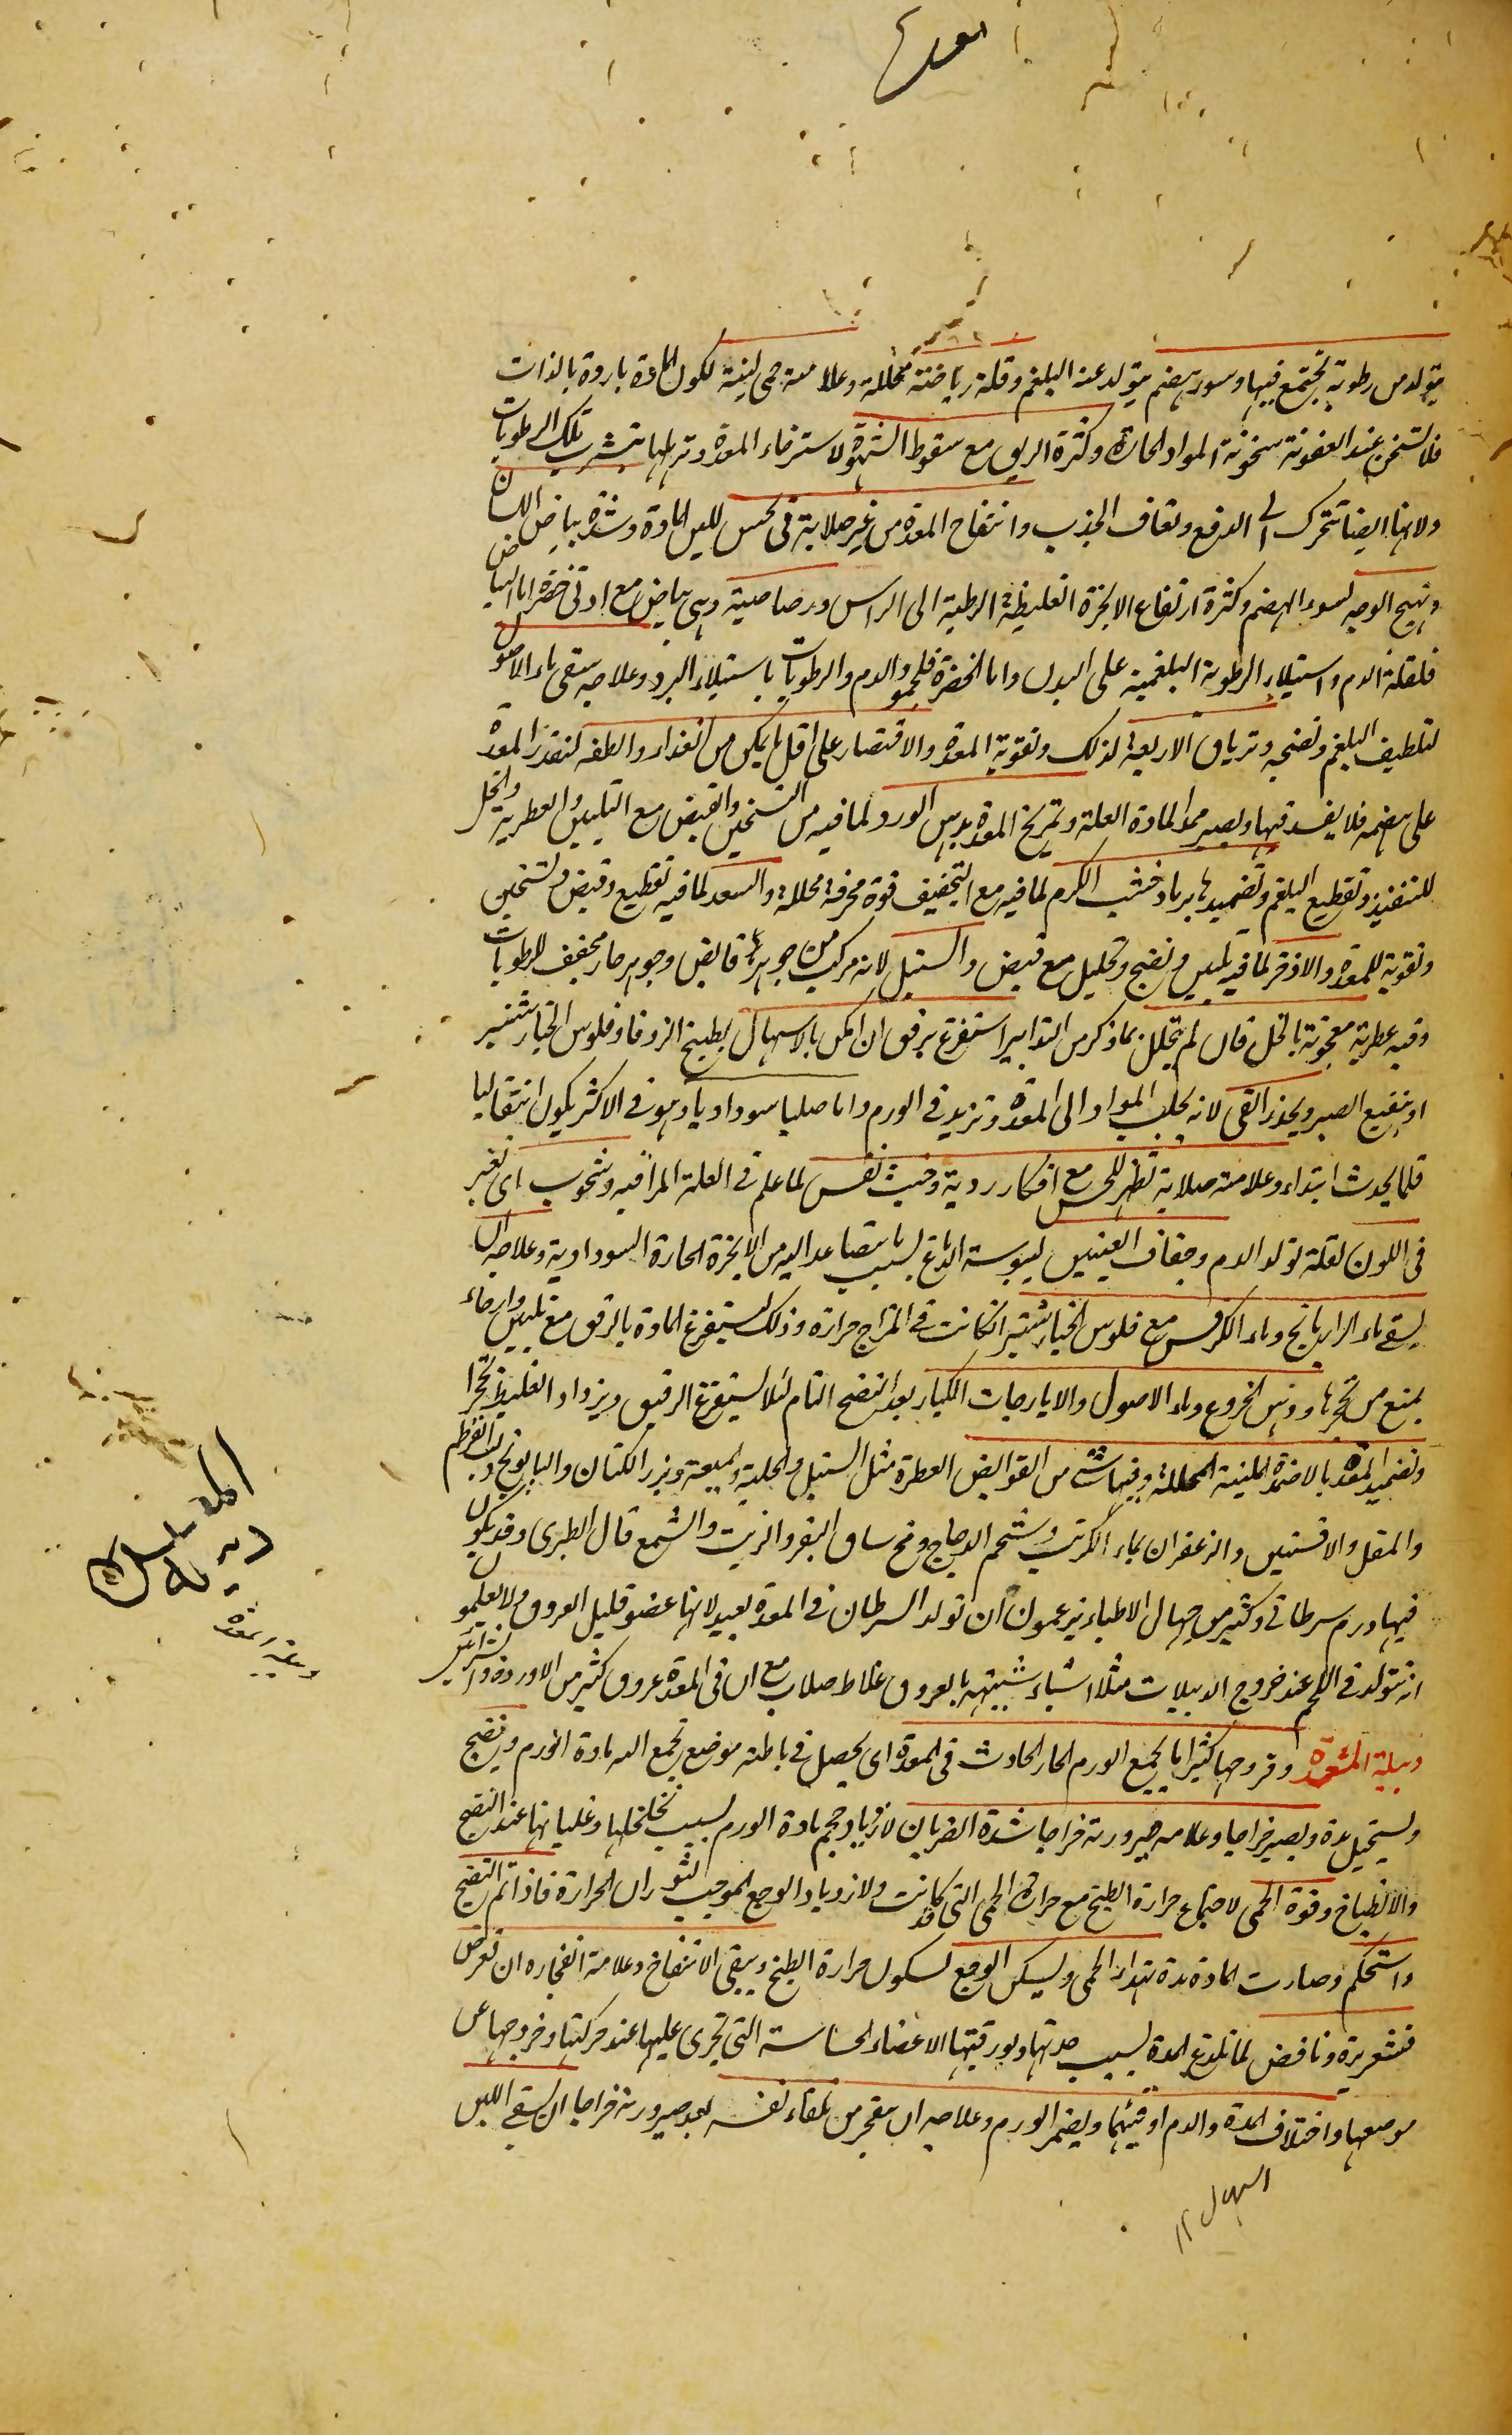 يتولد من رطوبة تجتمع فيها وسوء هضم يتولد عنه البلغم وقلة رياضة محللة وعلامته حمى لينة لكون المادة باردة بالذات
فلا تسخن عند العفونة سخونة المواد الحارة وكثرة الريق مع سقوط الشهوة لاسترخاء المعدة وترهلها بتشرب تلك الرطوبات
ولانها ايضا تتحرك الى الدفع وتعاف الجذب وانتفاخ المعدة من غير صلابة فى الحس للين المادة وشدة بياض اللسان
وتهيج الوجه لسوء الهضم وكثرة ارتفاع الابخرة الغليظة الرطبة الى الراس ورصاصية وهى بياض مع ادنى خضرة اما البياض
فلقلة الدم واستيلاء الرطوبة البلغمية على البدن واما الخضرة فلجمود الدم والرطوبات باستيلاء البرد وعلاجه سقى ماء الاصول
لتلطيف البلغم ونضجه وترياق الاربعة لذلك وتقوية المعدة والاقتصار على اقل ما يمكن من الغذاء والطفه لتقدر المعدة
على هضمه فلا يفسد فيها ويصير ممدا لمادة العلة وتمريخ المعدة بدهن الورد لما فيه من التسخين والقبض مع التليين والعطرية والخل
للتنفيذ وتقطيع البلغم وتضميدها برماد خشب الكرم لما فيه مع التجفيف قوة محرقة محللة والسعد لما فيه تقطيع وقبض وتسخين
وتقوية للمعدة والاذخر لما فيه تليين ونضج وتحليل مع قبض والسنبل لانه مركب من جوهر قابض وجوهر حار مجفف للرطوبات
وفيه عطرية معجونة بالخل فان لم يتحلل بما ذكر من التدابير استفرغ برفق ان امكن بالاسهال بطبيخ الزوفا وفلوس الخيارشنبر
او بنقيع الصبر ويحذر القى لانه يجلب المواد الى المعدة وتزيد فى الورم واما صلبا سوداويا وهو فى الاكثر يكون انتقاليا
قلما يحدث ابتداء وعلامته صلابة تظهر للحس مع افكار ردية وخبث نفس لما علم فى العلة المراقية وشحوب اى تغير
فى اللون لقلة تولد الدم وجفاف العينين ليبوسة الدماغ بسبب ما يتصاعد اليه من الابخرة الحارة السوداوية وعلاجه ان
يسقى ماء الرازيانج وماء الكرفس مع فلوس الخيارشنبر ان كانت فى المزاج حرارة وذلك ليستفرغ المادة بالرفق مع تليين وارخاء
يمنع من تحجرها ودهن الخروع وماء الاصول والايارجات الكبار بعد النضج التام لئلا يستفرغ الرقيق ويزداد الغليظ تحجرا
وتضميد المعدة بالاضمدة الملينة المحللة وفيها شئ من القوابض العطرة مثل السنبل والحلبة والميعة وبزر الكتان والبابونج ولب القرطم
والمقل والافسنتين والزعفران بماء الكرنب وشحم الدجاج ومخ ساق البقر والزيت والشمع قال الطبرى وقد يكون
فيها ورم سرطانى وكثير من جهال الاطباء يزعمون ان تولد السرطان فى المعدة بعيد لانها عضو قليل العروق ولا يعلمون
انه يتولد فى اللحم عند خروج الدبيلات مثلا اشياء شبيهة بالعروق غلاظ صلاب مع ان فى المعدة عروق كثير من الاوردة والشرائين
دبيلة المعدة وقروحها كثيرا ما يجمع الورم الحار الحادث فى المعدة اى يحصل فى باطنه موضع تجمع اليه مادة الورم وينضج
ويستحيل مدة ويصير خراجا وعلامة صيرورته خراجا شدة الضربان لازدياد حجم مادة الورم بسبب تخلخلها وغليانها عند النضج
والانطباخ وقوة الحمى لاجتماع حرارة الطبخ مع حرارة الحمى التى كانت ولازدياد الوجع الموجب لثوران الحرارة فاذا تم النضج
واستحكم وصارت المادة مدة تهدأ الحمى ويسكن الوجع لسكون حرارة الطبخ ويبقى الانتفاخ وعلامة انفجاره ان تعرض
قشعريرة ونافض لما تلذع المدة بسبب حدتها وبورقيتها الاعضاء الحساسة التى تجرى عليها عند حركتها وخروجها عن
موضعها واختلاف المدة والدم او قيئهما ويضمر الورم وعلاجه ان ينفجر من تلقاء نفسه بعد صيرورته خراجا ان يسقى اللبن
دبيلة المعدة